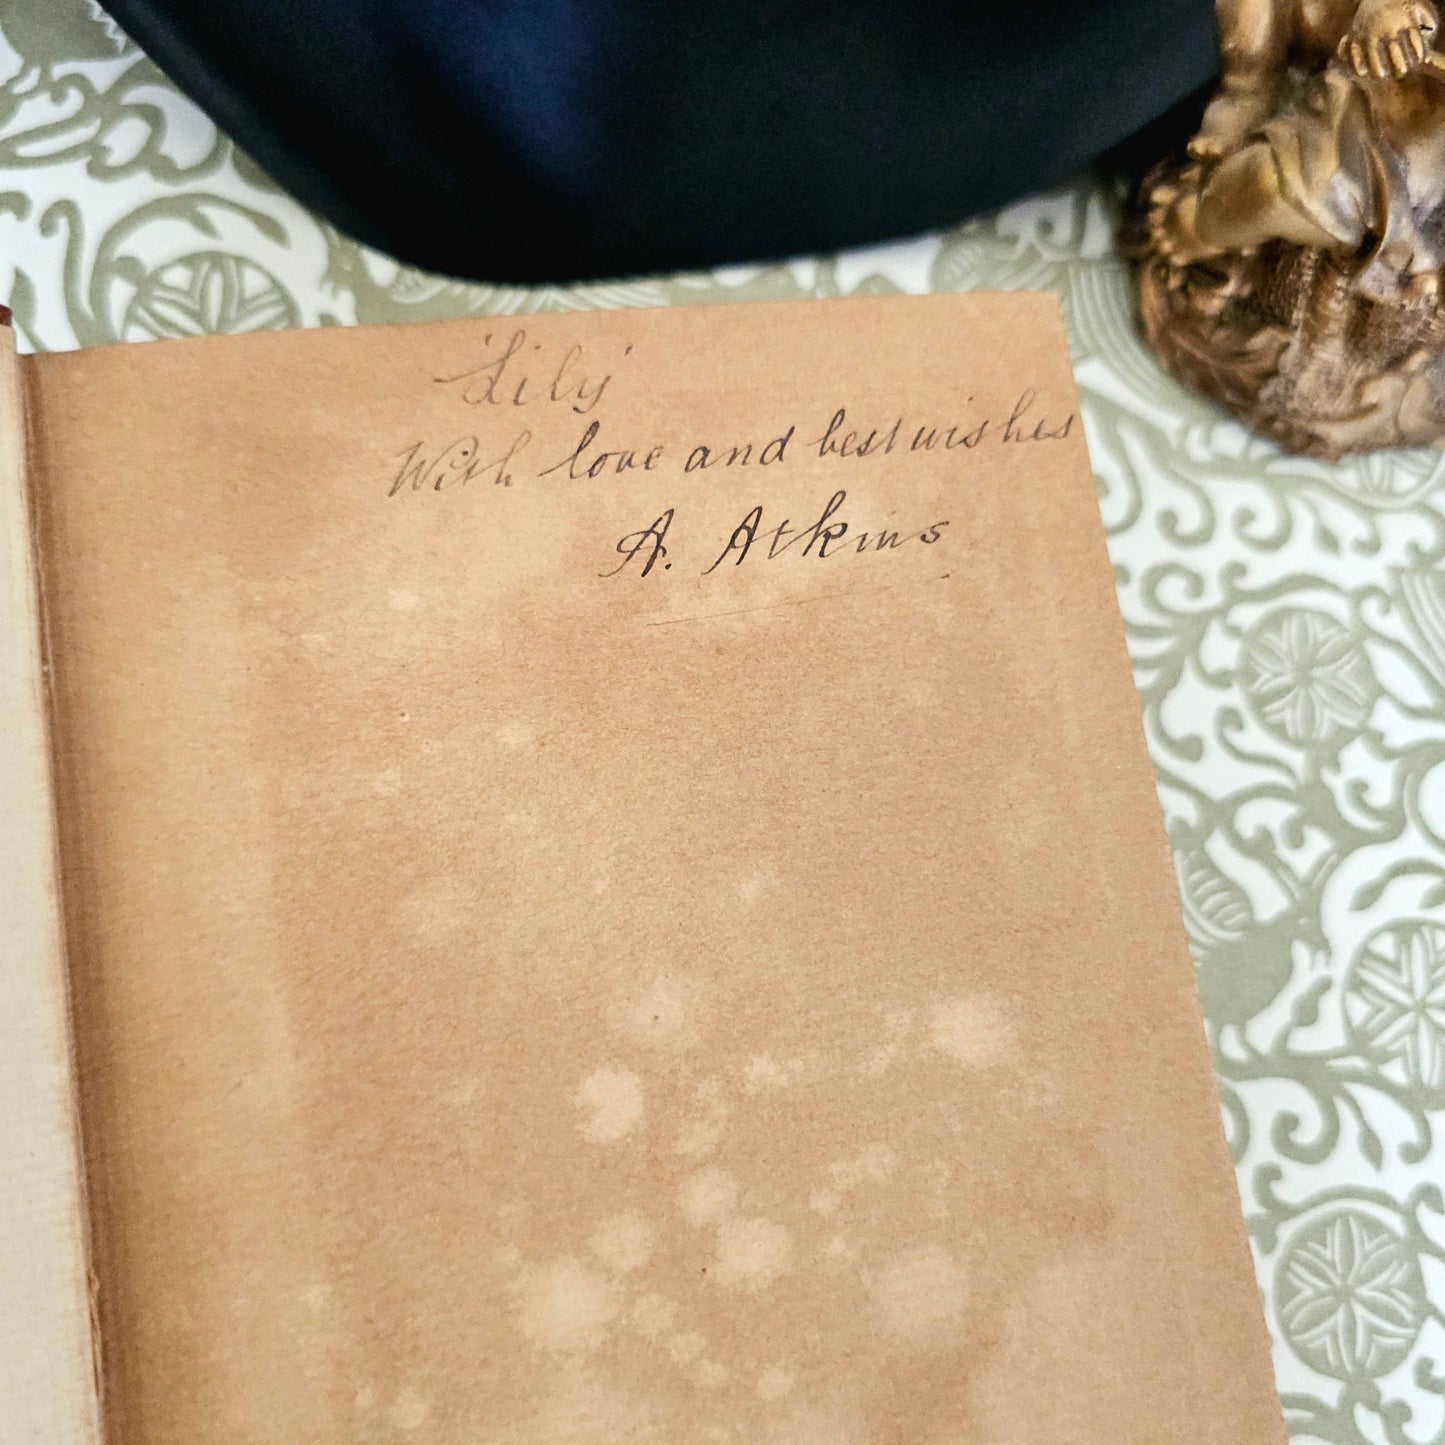 'Lily'
With love and best wishes
A. Atkins